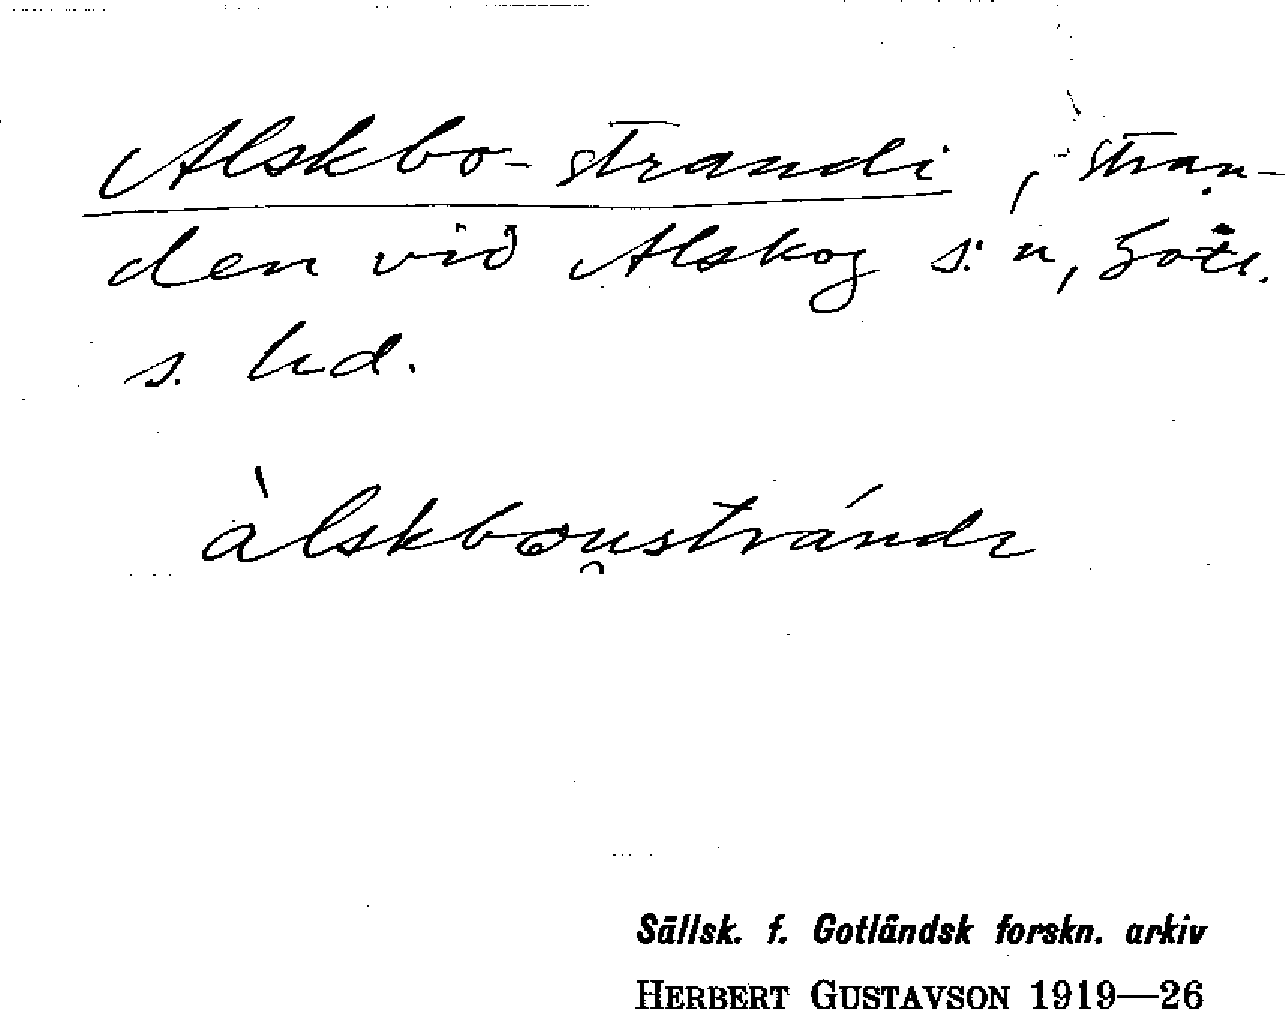 Alskbo-strandi, stran-
den vid Alskog s:n, Gotl.
s. hd.
àlskbou̯strándı
Sällsk. f. Gotländsk forskn. arkiv
HERBERT GUSTAVSON 1919—26